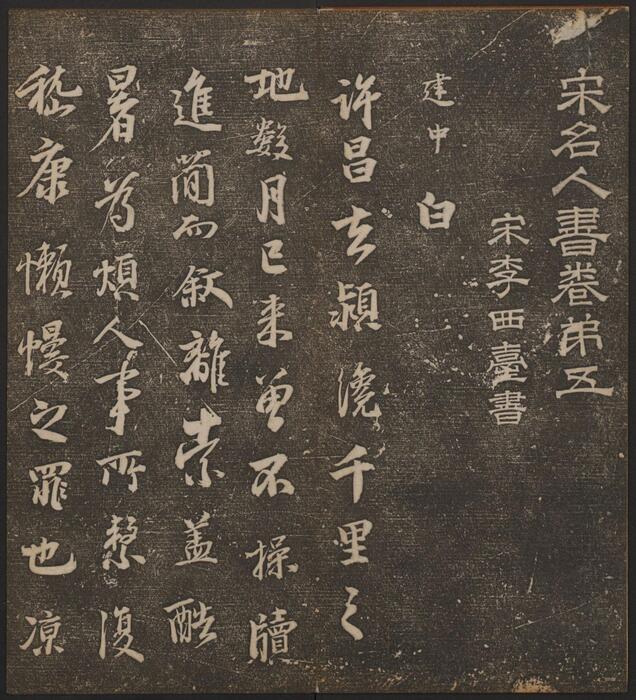 宋名人書卷弟五
宋李西臺書
建中
白
許昌去潁澆千里之
地數月已来曾不操牘
進簡而叙離索蓋酷
暑為煩人事所繫復
嵇康懶慢之罪也凉